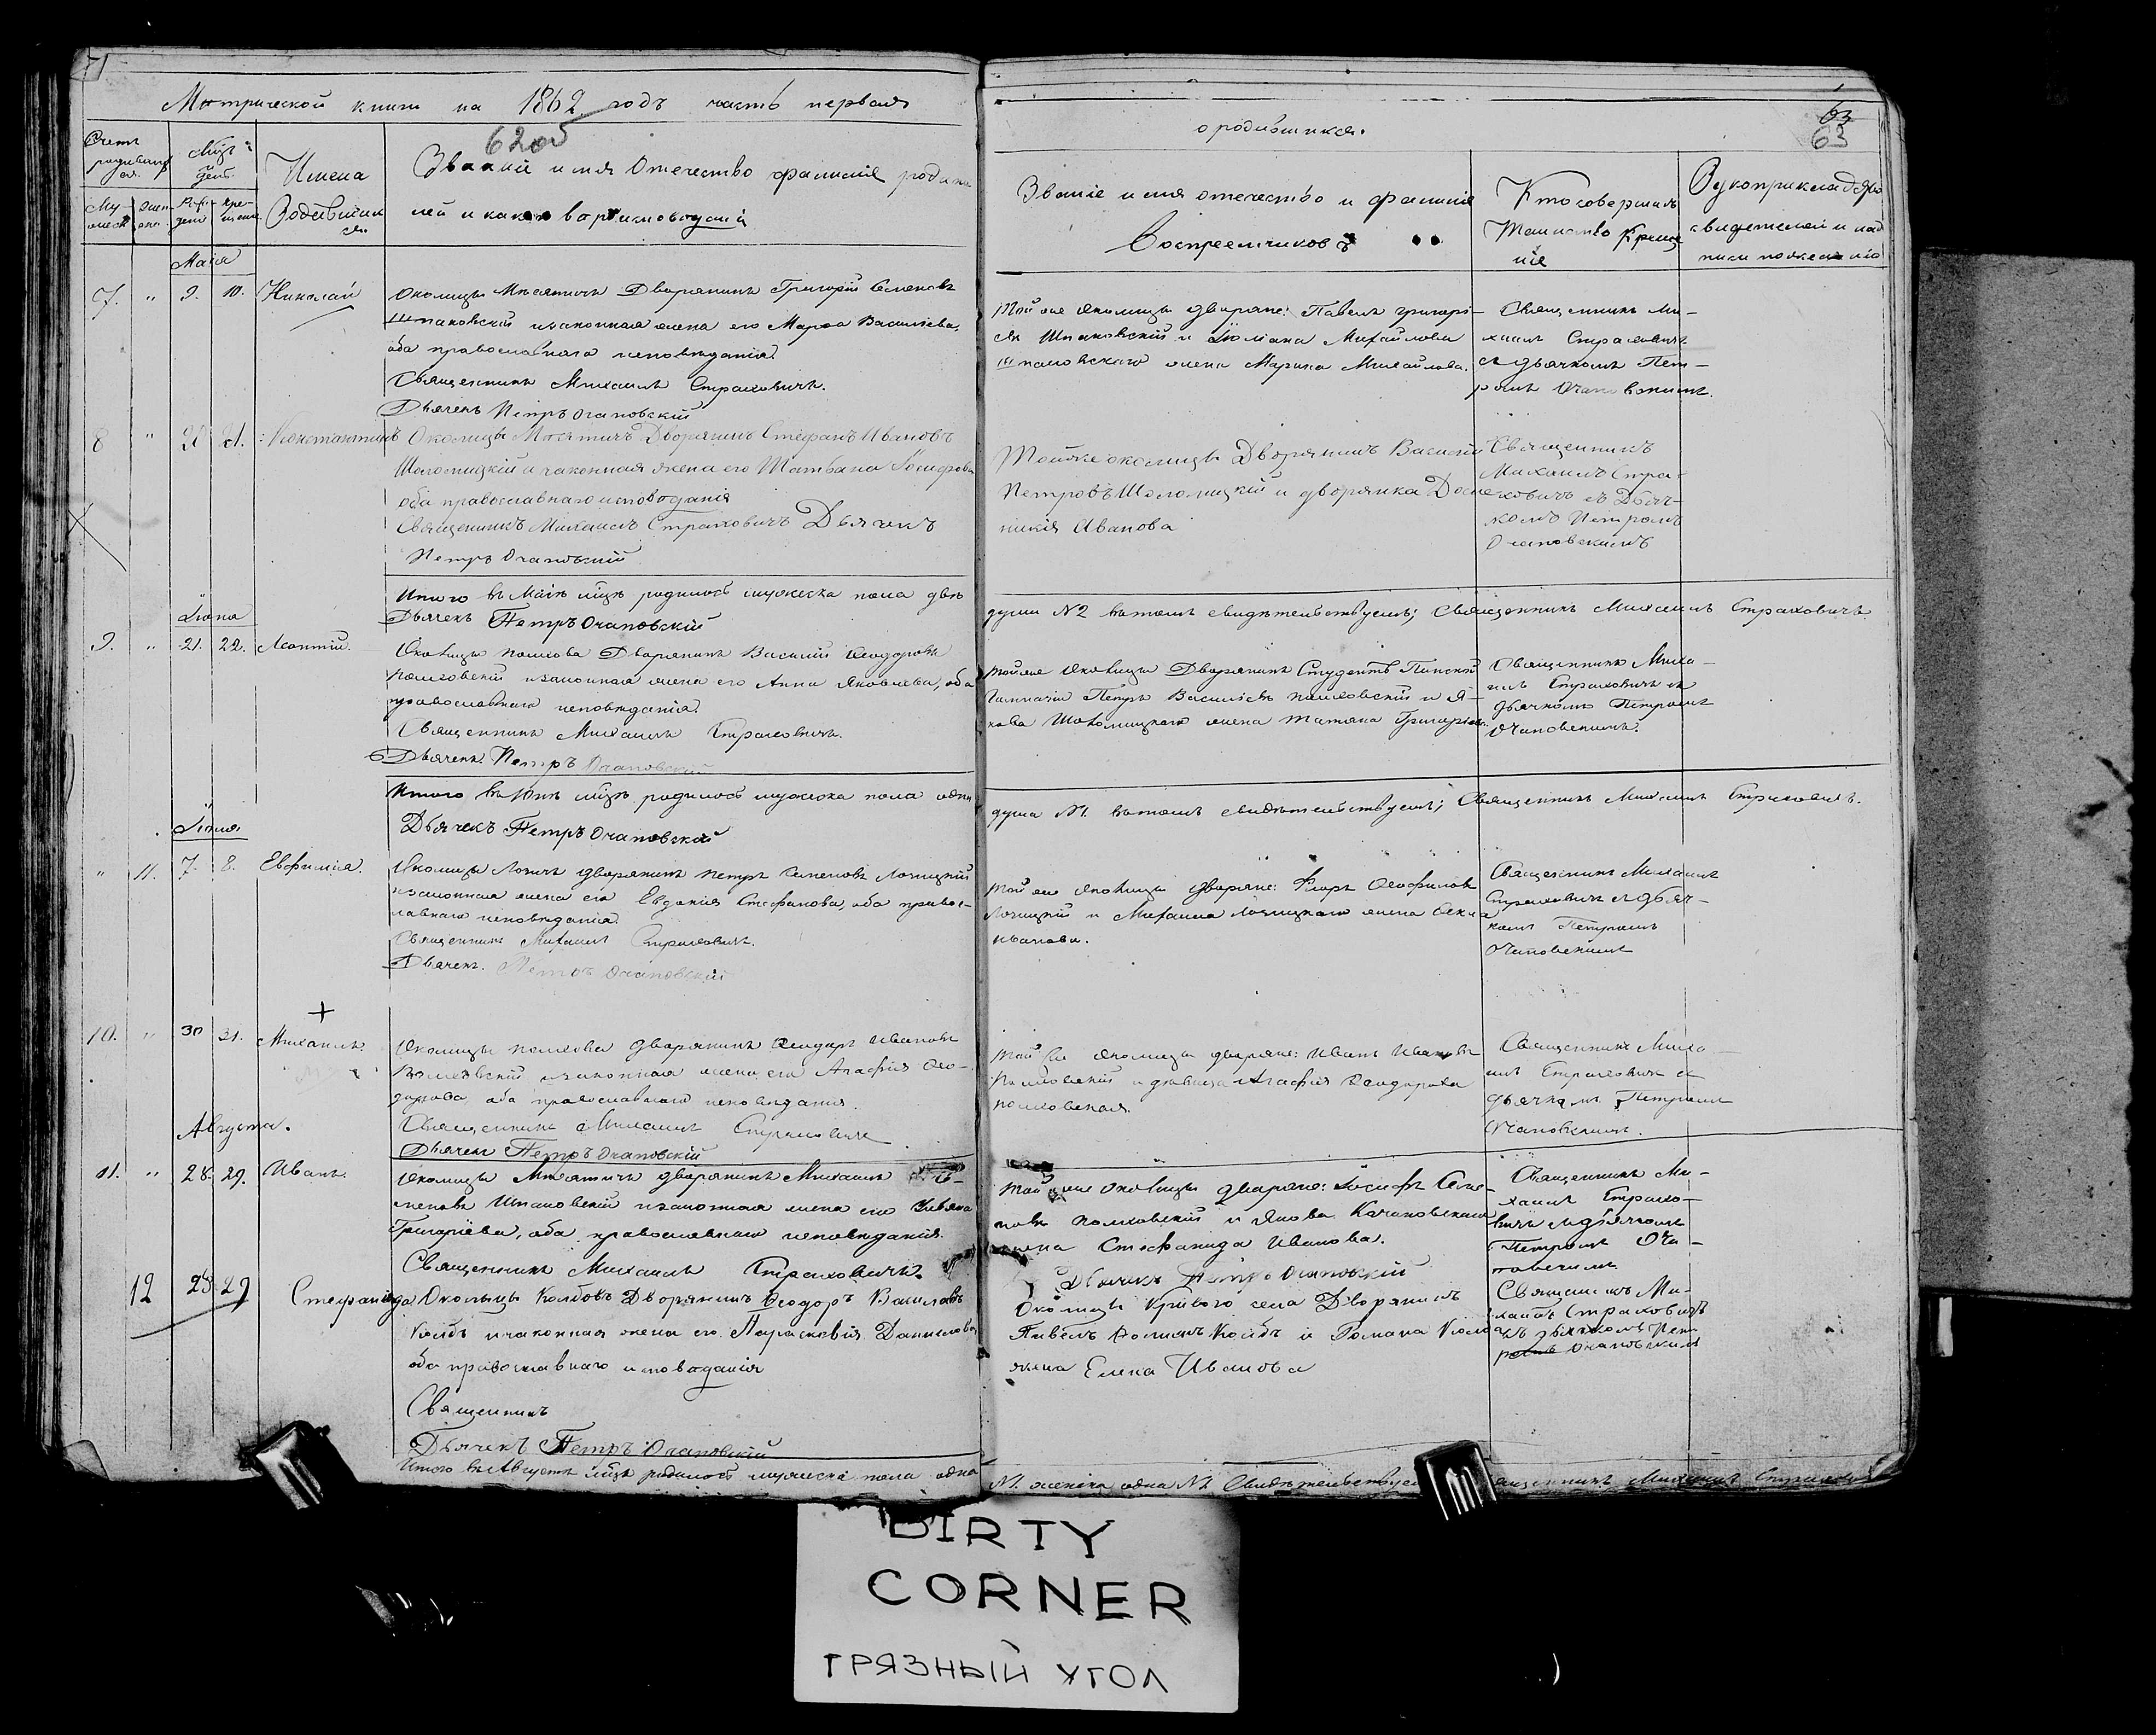 Метрической книги на 1862 годъ часть первая
о родившихся.
62об
63
63
Счетъ родившихся.
Мѣсяцъ и день.
Имена Родившихся
Званіе имя Отечество фамилія родителей и какого вѣроисповѣданія
Званіе имя отечество и фамилія Воспреемниковъ
Кто совершалъ Таинство Крещенія
Рукоприкладство свидетелей и
Мая
7. " 9. 10. Николай
Околицы Мѣсятичъ Дворянинъ Григорій Семеновъ
Шпаковскій и законная жена его Марѳа Василіева,
оба православнаго исповѣданія.
Священникъ Михаилъ Страховичъ.
Дьячекъ Петръ Очаповскій
Той же околицы дворяне: Павелъ Григорі-
евъ Шпаковскій и Михайлова
Шпаковскаго жена Марина Михайлова.
Священникъ Ми-
хаилъ Страховичъ
съ дьячкомъ Пет-
ромъ Очаповскимъ.
8 " 20 21. Константинъ
Околицы Мѣсятичъ Дворянинъ Стефанъ Ивановъ
Шоломицкій и законная жена его Татьана Іосифова
оба православнаго исповѣданія
Священникъ Михаилъ Страховичъ Дьячекъ
Петръ Очаповскій
Той же околицы Дворянинъ Василій
Петровъ Шоломицкій и дворянка
Иванова
Священникъ
Михаилъ Стра-
ховичъ съ Дьяч-
комъ Петромъ
Очаповскимъ
Итого въ Маіѣ мцѣ родилось мужеска пола двѣ
души №2 въ томъ свидѣтельствуемъ; Священникъ Михаилъ Страховичъ.
Дьячекъ Петръ Очаповскій
Іюня
9. " 21. 22. Леонтій.
Околицы Полхова Дворянинъ Василій Ѳеодоровъ
Полховскій и законная жена его Анна Яковлева, оба
православнаго исповѣданія.
Священникъ Михаилъ Страховичъ.
Дьячекъ Петръ Очаповскій
Той же околицы Дворянинъ Студентъ Пинской
Гимназіи Петръ Василіевъ Полховскій и Я-
кова Шоломицкаго жена Татяна Григоріева.
Священникъ Миха-
илъ Страховичъ съ
дьячкомъ Петромъ
Очаповскимъ.
Итого въ Юнѣ мцѣ родилось мужеска пола одна
душа №1. въ томъ свидѣтельствуемъ; Священникъ Михаилъ Страховичъ.
Дьячекъ Петръ Очаповскій
Іюля
" 11. 7. 8. Евфимія.
Околицы Ложичъ дворянинъ Петръ Семеновъ Ложицкій
и законная жена его Евдокія Стефанова, оба правос-
лавнаго исповѣданія.
Священникъ Михаилъ Страховичъ.
Дьячекъ. Петръ Очаповскій
Той же околицы дворяне: Флоръ Ѳеофиловъ
Ложицкій и Михаила Ложицкаго жена
Иванова.
Священникъ Михаилъ
Страховичъ съ дьяч-
комъ Петромъ
Очаповскимъ
10. " 30 31. Михаилъ.
Околицы Полхова дворянинъ Ѳеодоръ Ивановъ
Полховскій и законная жена его Агафія Ѳео-
дорова, оба православнаго исповѣданія.
Священникъ Михаилъ Страховичъ
Дьячекъ Петръ Очаповскій
Той же околицы дворяне: Иванъ Ивановъ
Полховскій и дѣвица Агафія Ѳеодорова
Полховская.
Священникъ Миха-
илъ Страховичъ съ
дьячкомъ Петромъ
Очаповскимъ.
Августа.
11. " 28. 29. Иванъ.
Околицы Мѣсятичъ дворянинъ Михаилъ Се-
меновъ Шпаковскій и законная жена его
Григоріева, оба православнаго исповѣданія.
Священникъ Михаилъ Страховичъ.
Дьячекъ Петръ Очаповскій
Той же околицы дворяне: Іосифъ Семе-
новъ Полховскій и Якова Качановскаго
жена Стефанида Иванова.
Священникъ Ми-
хаилъ Страхо-
вичъ съ дьячкомъ
Петромъ Оча-
повскимъ
12 28 29 Стефанида
Околицы Колбовъ Дворянинъ Ѳеодоръ Василіевъ
Колбъ и законная жена его Параскевія Данилова
оба православнаго исповѣданія
Священникъ
Дьячекъ Петръ Очаповскій
Околицы Кривого села Дворянинъ
Павелъ Колбъ и Романа Колба
жена Елена Иванова
Священникъ Ми-
хаилъ Страховичъ
съ дьячкомъ Пет-
ромъ Очаповскимъ
Итого въ Августѣ мцѣ родилось мужеска пола одна
№1. женска одна №1. Священникъ Михаилъ Страховичъ
DIRTY
CORNER
ГРЯЗНЫЙ УГОЛ